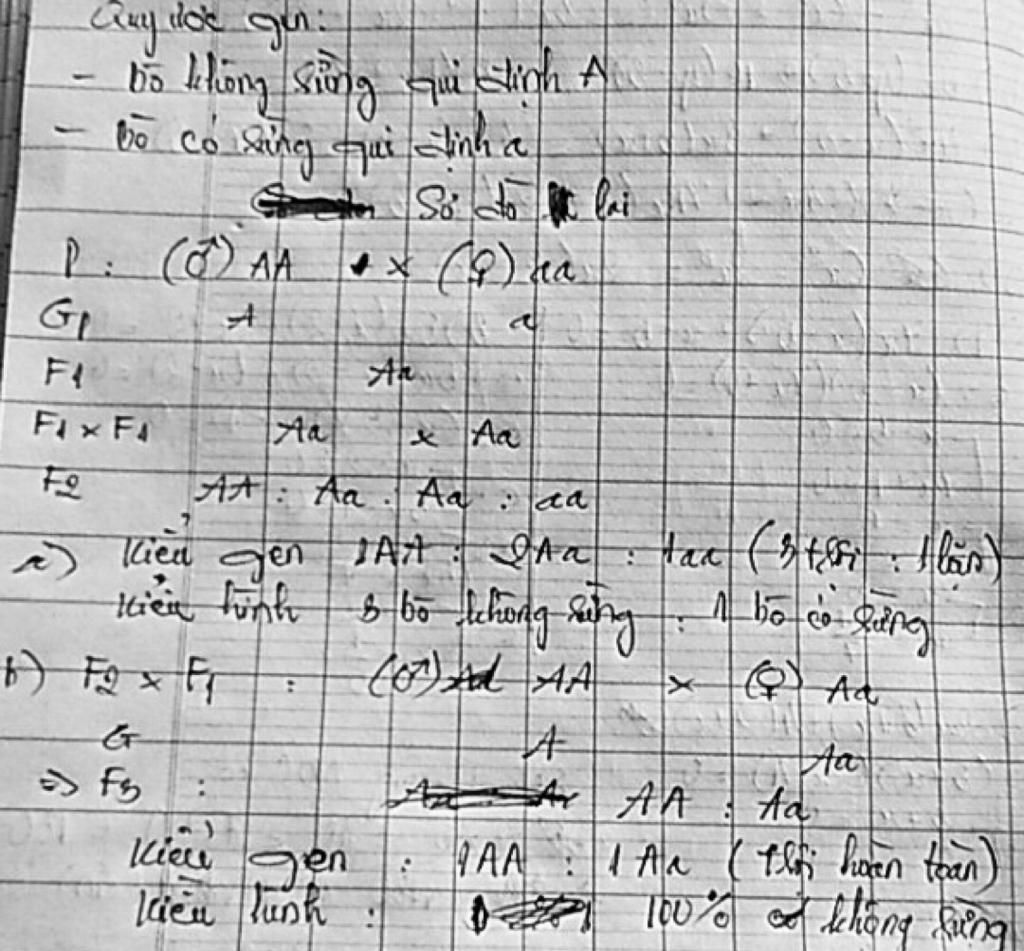 Quy ước gen:
- bò không sừng qui định A
- bò có sừng qui định a
Sơ đồ lai
P : (♂) AA x (♀) aa
GP A a
F1 Aa
F1 x F1 Aa x Aa
F2 AA : Aa : Aa : aa
a) Kiểu gen 1AA : 2Aa : 1aa (3 trội : 1 lặn)
Kiểu hình 3 bò không sừng : 1 bò có sừng
b) F2 x F1 : (♂) AA x (♀) Aa
G A Aa
=> F3 : AA : Aa
Kiểu gen : 1AA : 1Aa (trội hoàn toàn)
Kiểu hình : 100% không sừng